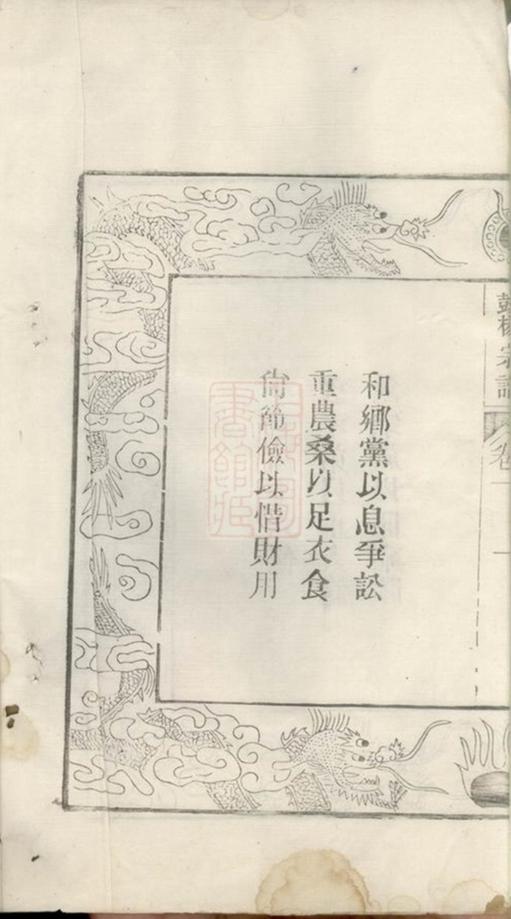 和鄉黨以息爭訟
重農桑以足衣食
尙節儉以惜財用
卷一